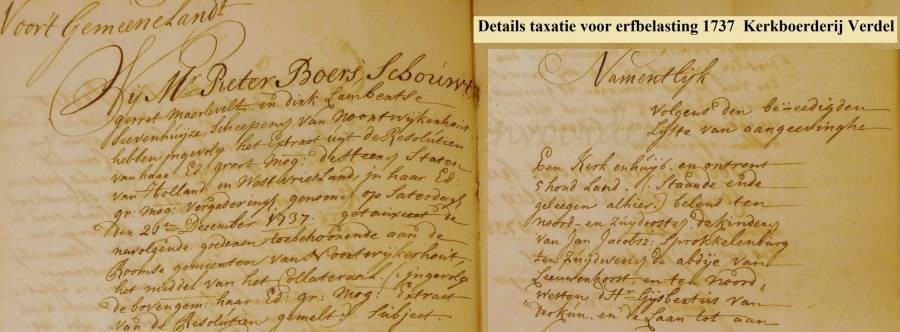 Voor't Gemeene Landt
Wij Mr. Pieter Boers, Schouwt,
gerret Maerlevelt en dirk Lambertse
seevenhuijse, Scheepens van Noortwijkerhout
hebben ingevolg het Extract uijt de Resolutien
van haar Ed: groot Mog: de Heeren Staten
van Holland en West Vriesland, in haar Ed:
gr: Mog: Vergadering, genomen op Saterdagh
den 20en December 1737. getauxeert de
navolgende goederen toebehoorende aan de
Roomse gemeenten van Noortwijkerhout,
het middel van het Collateraal (ingevolge
de bovengem: haar Ed: gr: Mog: Extract
van de Resolutien gemelt) Subject
Details taxatie voor erfbelasting 1737 Kerkboerderij Verdel
Namentlijk
Volgens den beëedigden
Lijste van aangeevinghe
Een Kerkenhuijs en ontrent
5 hond Land. (Staande ende
geleegen alhier) belend ten
noord- en zuijdoosten de kinderen
van Jan Jacobsz: Sprokkelenburg
ten zuijdwesten de abdije van
Leeuwenhorst, en ten noord
westen dHr. Gijsbertus van
derkun. en de Laan tot aan